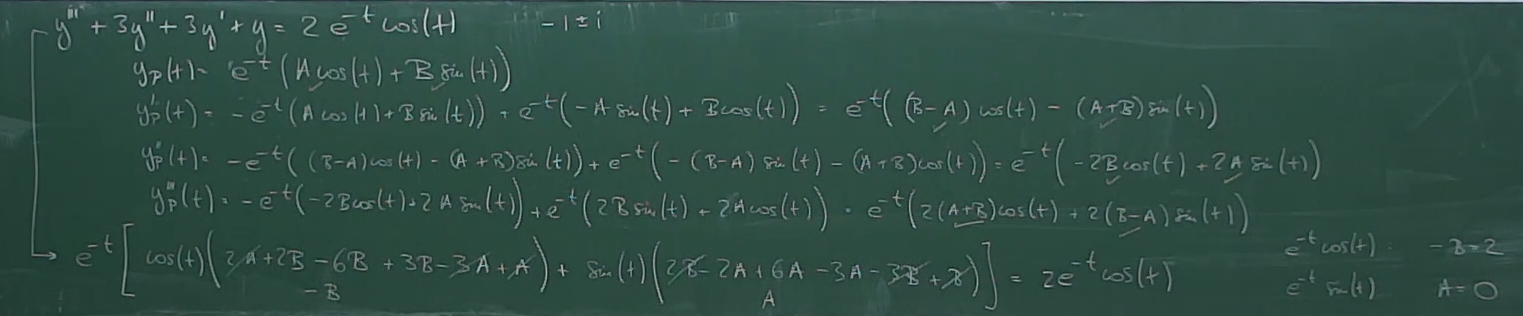 y''' + 3y'' + 3y' + y = 2 e^{-t} cos(t)    -1 ± i
y_p(t) = e^{-t} (A cos(t) + B sin(t))
y_p'(t) = -e^{-t} (A cos(t) + B sin(t)) + e^{-t} (-A sin(t) + B cos(t)) = e^{-t} ((B-A) cos(t) - (A+B) sin(t))
y_p''(t) = -e^{-t} ((B-A) cos(t) - (A+B) sin(t)) + e^{-t} (-(B-A) sin(t) - (A+B) cos(t)) = e^{-t} (-2B cos(t) + 2A sin(t))
y_p'''(t) = -e^{-t} (-2B cos(t) + 2A sin(t)) + e^{-t} (2B sin(t) + 2A cos(t)) = e^{-t} (2(A+B) cos(t) + 2(B-A) sin(t))
e^{-t} [cos(t) (2A + 2B - 6B + 3B - 3A + A) + sin(t) (2B - 2A + 6A - 3A - 3B + B)] = 2e^{-t} cos(t)    e^{-t} cos(t): -B = 2
-B    A    e^{-t} sin(t)    A = 0